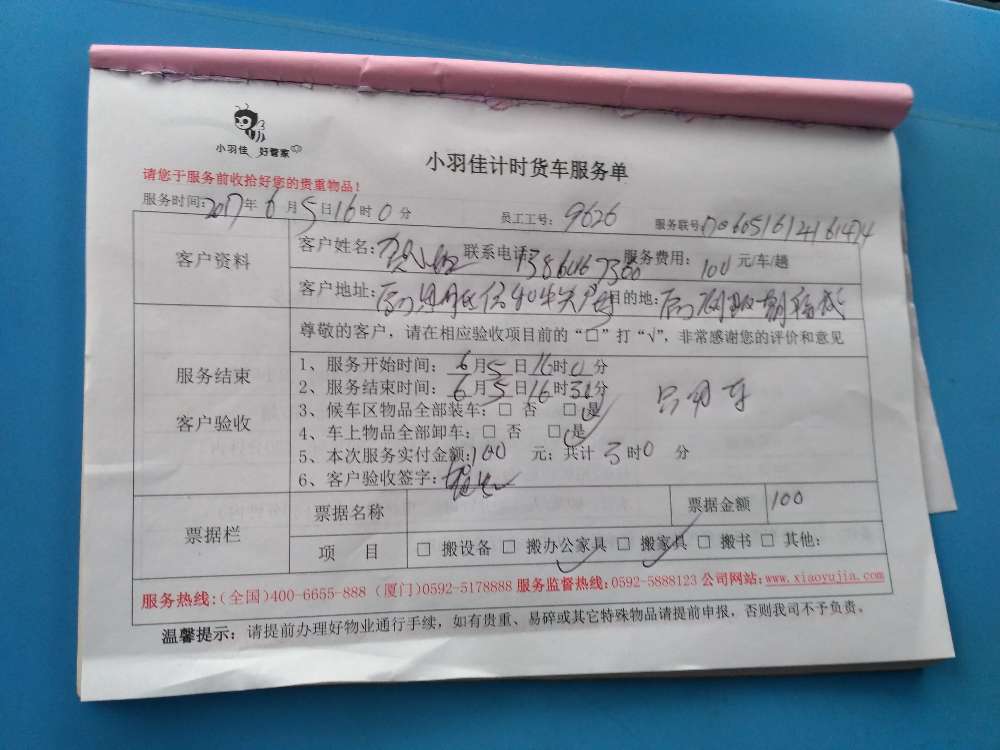 小羽佳 好管家
小羽佳计时货车服务单
请您于服务前收拾好您的贵重物品！
服务时间:2017年6月5日16时0分 员工工号: 9626 服务联号
客户资料
客户姓名: 联系电话: 服务费用: 100元/车/趟
客户地址: 目的地:
尊敬的客户，请在相应验收项目前的“□”打“√”，非常感谢您的评价和意见
服务结束
客户验收
1、服务开始时间: 6月5日16时0分
2、服务结束时间: 6月5日16时30分
3、候车区物品全部装车: □ 否 □ 是
4、车上物品全部卸车: □ 否 □ 是
只用车
5、本次服务实付金额:100 元; 共计 时0 分
6、客户验收签字:
票据栏
票据名称 票据金额 100
项 目 □ 搬设备 □ 搬办公家具 □ 搬家具 □ 搬书 □ 其他:
服务热线:(全国)400-6655-888 (厦门)0592-5178888 服务监督热线:0592-5888123 公司网站:www.xiaoyujia.com
温馨提示: 请提前办理好物业通行手续，如有贵重、易碎或其它特殊物品请提前申报，否则我司不予负责。